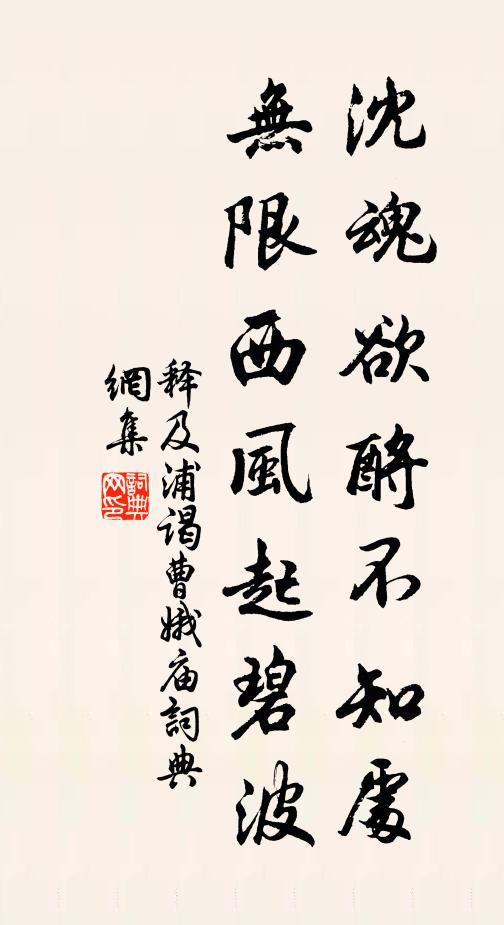 沈魂欲酹不知處
無限西風起碧波
释及浦谒曹娥庙詞典
網集
詞典
网印